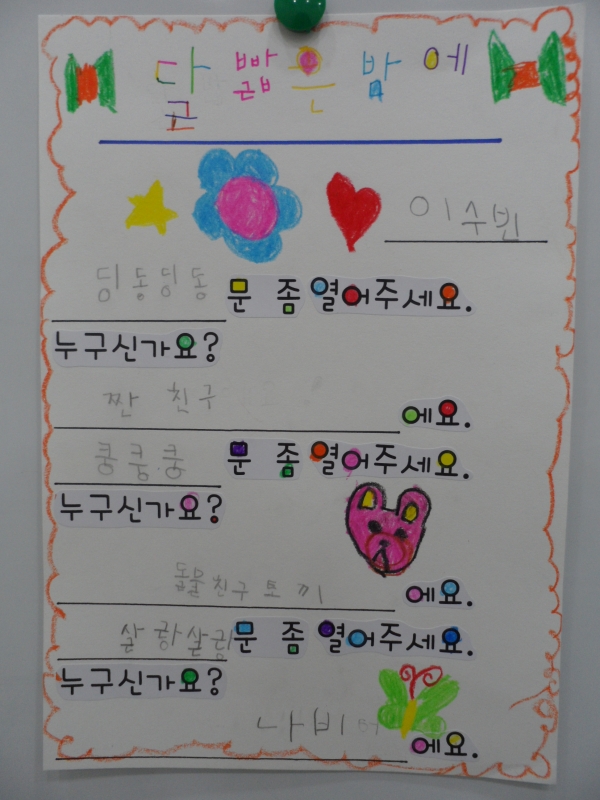 달 빫은 밤에
이수빈
딩동딩동 문 좀 열어주세요.
누구신가요?
짠 친구 에요.
쿵쿵쿵 문 좀 열어주세요.
누구신가요?
동물친구토끼 에요.
살랑살랑 문 좀 열어주세요.
누구신가요?
나비 에요.